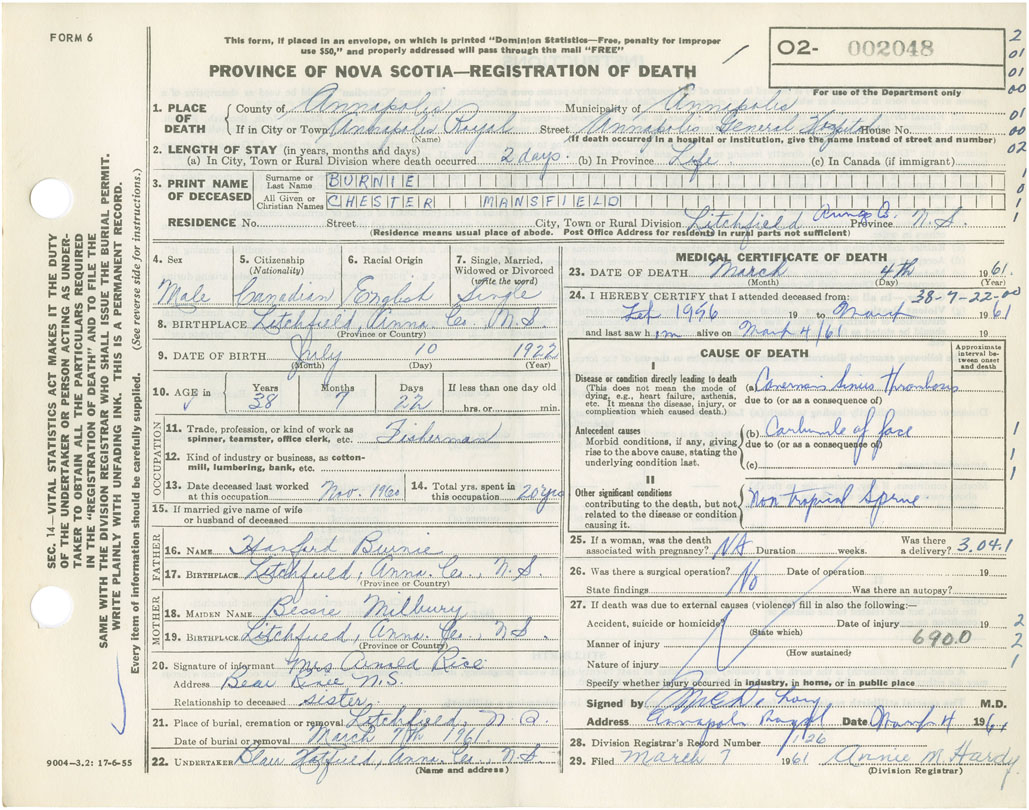 FORM 6
This form, if placed in an envelope, on which is printed "Dominion Statistics—Free, penalty for improper
use $50," and properly addressed will pass through the mail "FREE"
O2- 002048
For use of the Department only
PROVINCE OF NOVA SCOTIA—REGISTRATION OF DEATH
2
01
01
00
01
00
02
1. PLACE OF DEATH
County of Annapolis Municipality of Annapolis
If in City or Town Annapolis Royal Street Annapolis General Hospital House No.
(Name) (If death occurred in a hospital or institution, give the name instead of street and number)
2. LENGTH OF STAY (in years, months and days)
(a) In City, Town or Rural Division where death occurred 2 days. (b) In Province Life (c) In Canada (if immigrant)
3. PRINT NAME OF DECEASED
Surname or Last Name BURNIE
All Given or Christian Names CHESTER MANSFIELD
RESIDENCE No. Street City, Town or Rural Division Litchfield Province N.S.
(Residence means usual place of abode. Post Office Address for residents in rural parts not sufficient)
4. Sex Male
5. Citizenship (Nationality) Canadian
6. Racial Origin English
7. Single, Married, Widowed or Divorced (write the word) Single
8. BIRTHPLACE Litchfield, Anna. Co. N.S.
(Province or Country)
9. DATE OF BIRTH July 10 1922
(Month) (Day) (Year)
10. AGE in Years 38 Months 7 Days 22 If less than one day old hrs. or min.
OCCUPATION
11. Trade, profession, or kind of work as spinner, teamster, office clerk, etc. Fisherman
12. Kind of industry or business, as cotton-mill, lumbering, bank, etc.
13. Date deceased last worked at this occupation Nov. 1960
14. Total yrs. spent in this occupation 20 yrs
15. If married give name of wife or husband of deceased
FATHER
16. NAME Hanford Burnie
17. BIRTHPLACE Litchfield, Anna. Co., N.S.
(Province or Country)
MOTHER
18. MAIDEN NAME Bessie Milbury
19. BIRTHPLACE Litchfield, Anna. Co., N.S.
(Province or Country)
20. Signature of informant Mrs Arnold Rice
Address Bear River N.S.
Relationship to deceased sister
21. Place of burial, cremation or removal Litchfield, N.S.
Date of burial or removal March 7th 1961
22. UNDERTAKER Blair Anna. Co., N.S.
(Name and address)
9004—3.2: 17-6-55
SEC. 14—VITAL STATISTICS ACT MAKES IT THE DUTY
OF THE UNDERTAKER OR PERSON ACTING AS UNDER-
TAKER TO OBTAIN ALL THE PARTICULARS REQUIRED
IN THE "REGISTRATION OF DEATH" AND TO FILE THE
SAME WITH THE DIVISION REGISTRAR WHO SHALL ISSUE THE BURIAL PERMIT.
WRITE PLAINLY WITH UNFADING INK. THIS IS A PERMANENT RECORD.
Every item of information should be carefully supplied. (See reverse side for instructions.)
MEDICAL CERTIFICATE OF DEATH
23. DATE OF DEATH March 4th 1961.
(Month) (Day) (Year)
24. I HEREBY CERTIFY that I attended deceased from: 38-7-22-00
Feb 1956 19 to March 1961
and last saw him alive on March 4/61 19
CAUSE OF DEATH
Approximate interval between onset and death
I
Disease or condition directly leading to death
(This does not mean the mode of dying, e.g., heart failure, asthenia, etc. It means the disease, injury, or complication which caused death.)
(a) Cavernous Sinus Thrombosis
due to (or as a consequence of)
Antecedent causes
Morbid conditions, if any, giving rise to the above cause, stating the underlying condition last.
(b) Carbuncle of face
due to (or as a consequence of)
(c)
II
Other significant conditions
contributing to the death, but not related to the disease or condition causing it.
Non tropical Sprue
25. If a woman, was the death associated with pregnancy? NA Duration weeks. Was there a delivery? 3.04.1
26. Was there a surgical operation? No Date of operation 19
State findings Was there an autopsy?
27. If death was due to external causes (violence) fill in also the following:—
Accident, suicide or homicide? Date of injury 19
(State which)
Manner of injury 690.0
(How sustained)
Nature of injury
Specify whether injury occurred in industry, in home, or in public place
Signed by M.D.
Address Annapolis Royal Date March 4 1961
28. Division Registrar's Record Number 126
29. Filed March 7 1961 Annie M. Hardy
(Division Registrar)